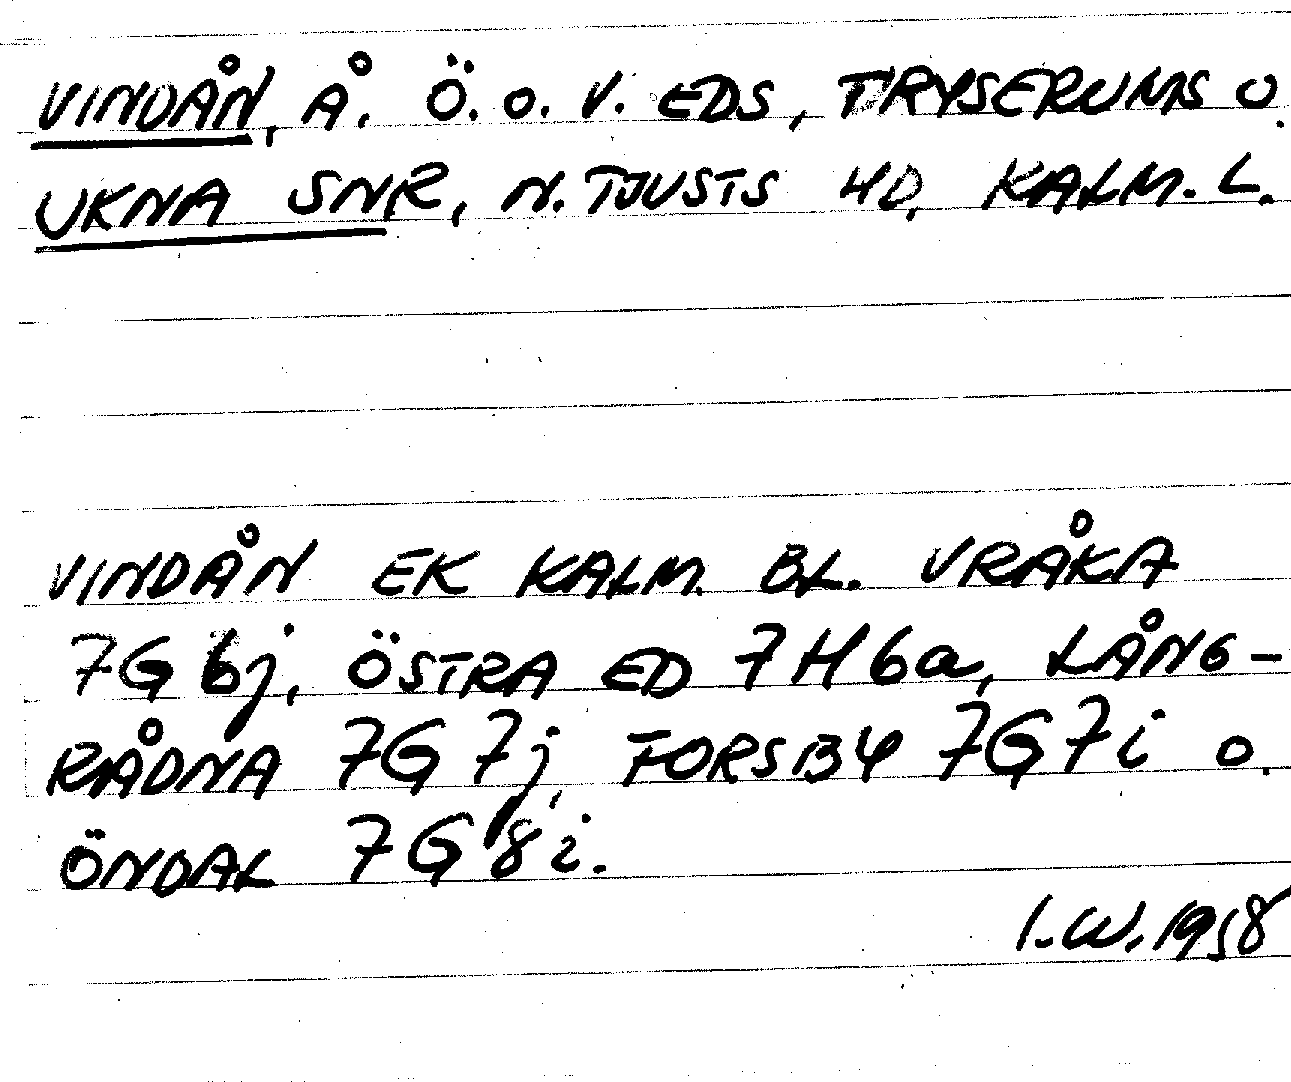 VINDÅN, Å. Ö. O. V. EDS, TRYSERUMS O.
UKNA SNR, N. TJUSTS HD, KALM. L.
VINDÅN EK KALM. BL. VRÅKA
7G6j, ÖSTRA ED 7H6a, LÅNG-
RÅDNA 7G7j, FORSBY 7G7i O.
ÖNDAL 7G8i.
I.W. 1958